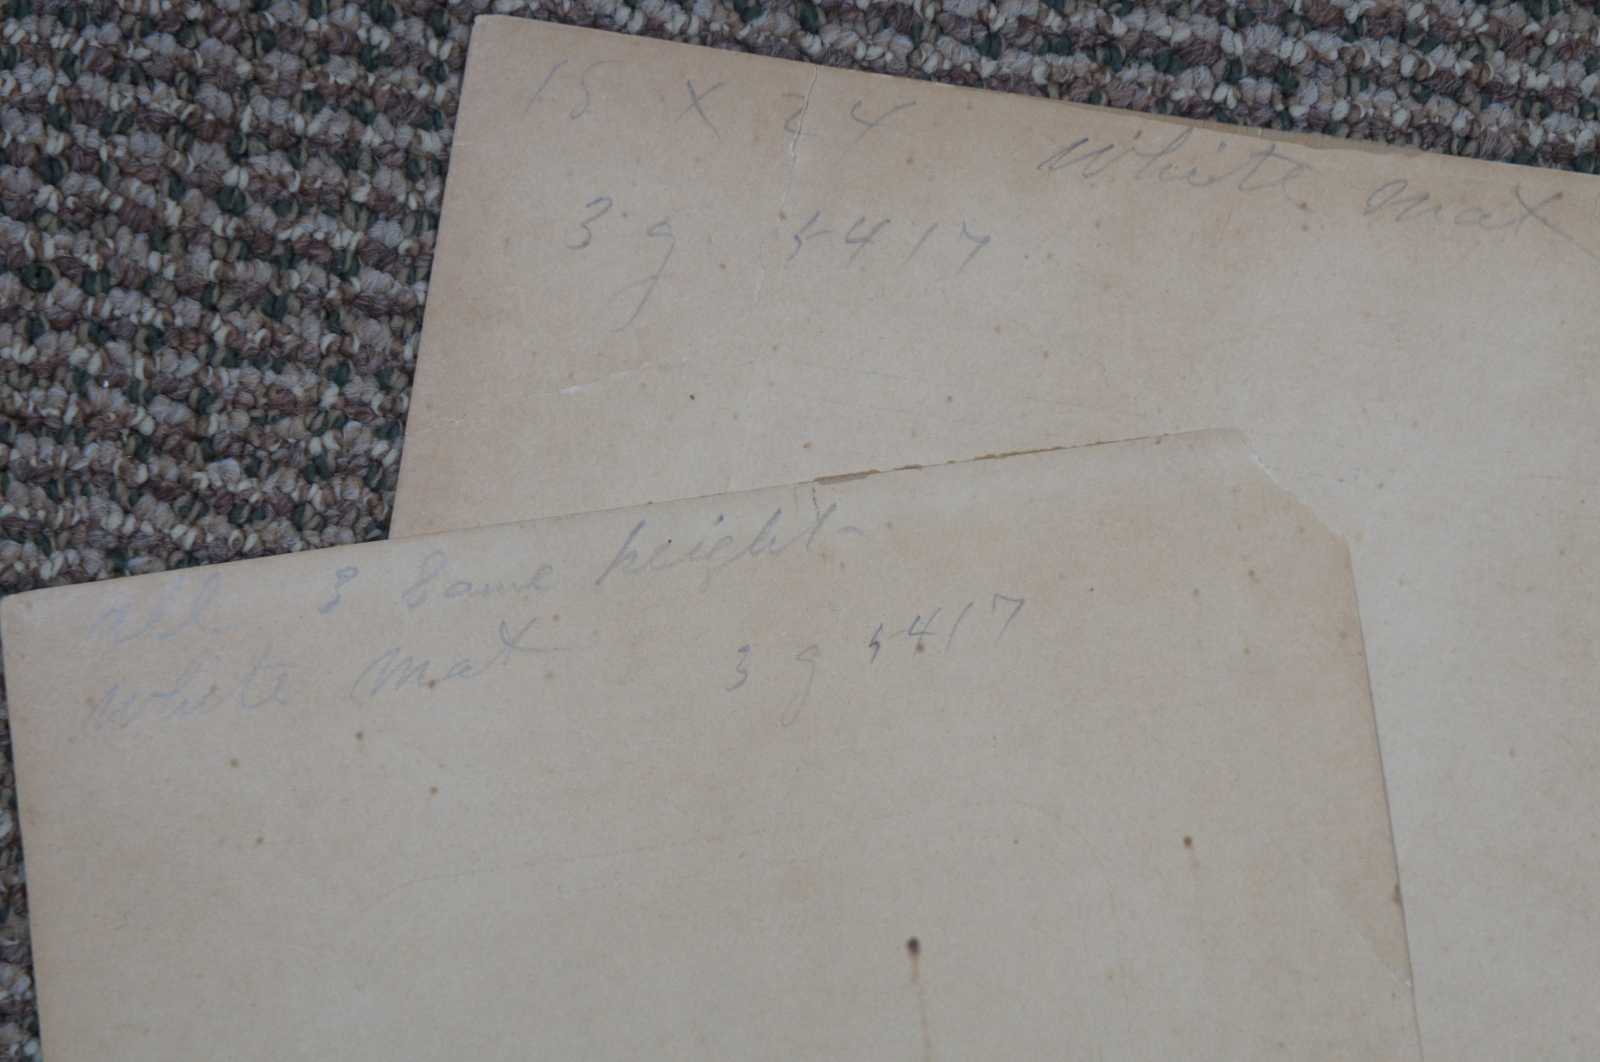 15 x 24 White mat
3 g 5417
all 3 Same height
White mat 3 g 5417